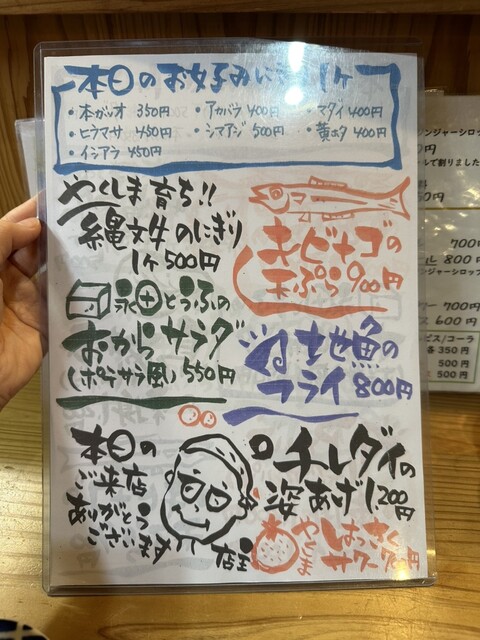 本日のお好みにぎり 1ヶ
・本ガツオ 350円
・アカバラ 400円
・マダイ 400円
・ヒラマサ 450円
・シマアジ 500円
・黄ホタ 400円
・イシアラ 450円
やくしま育ち!!
縄文牛のにぎり
1ヶ500円
キビナゴの
天ぷら900円
永田とうふの
おからサラダ
(ポテサラ風) 550円
地魚の
フライ 800円
本日の
ご来店
ありがとう
ございます
店主
チレダイの
姿あげ 1,200円
やくしま
はっさく
サワー
ンジャーシロップ
ルで割りました
700円
ル 800円
ンジャーシロップ
700円
ス 600円
ピス/コーラ
各 350円
500円
ス 500円